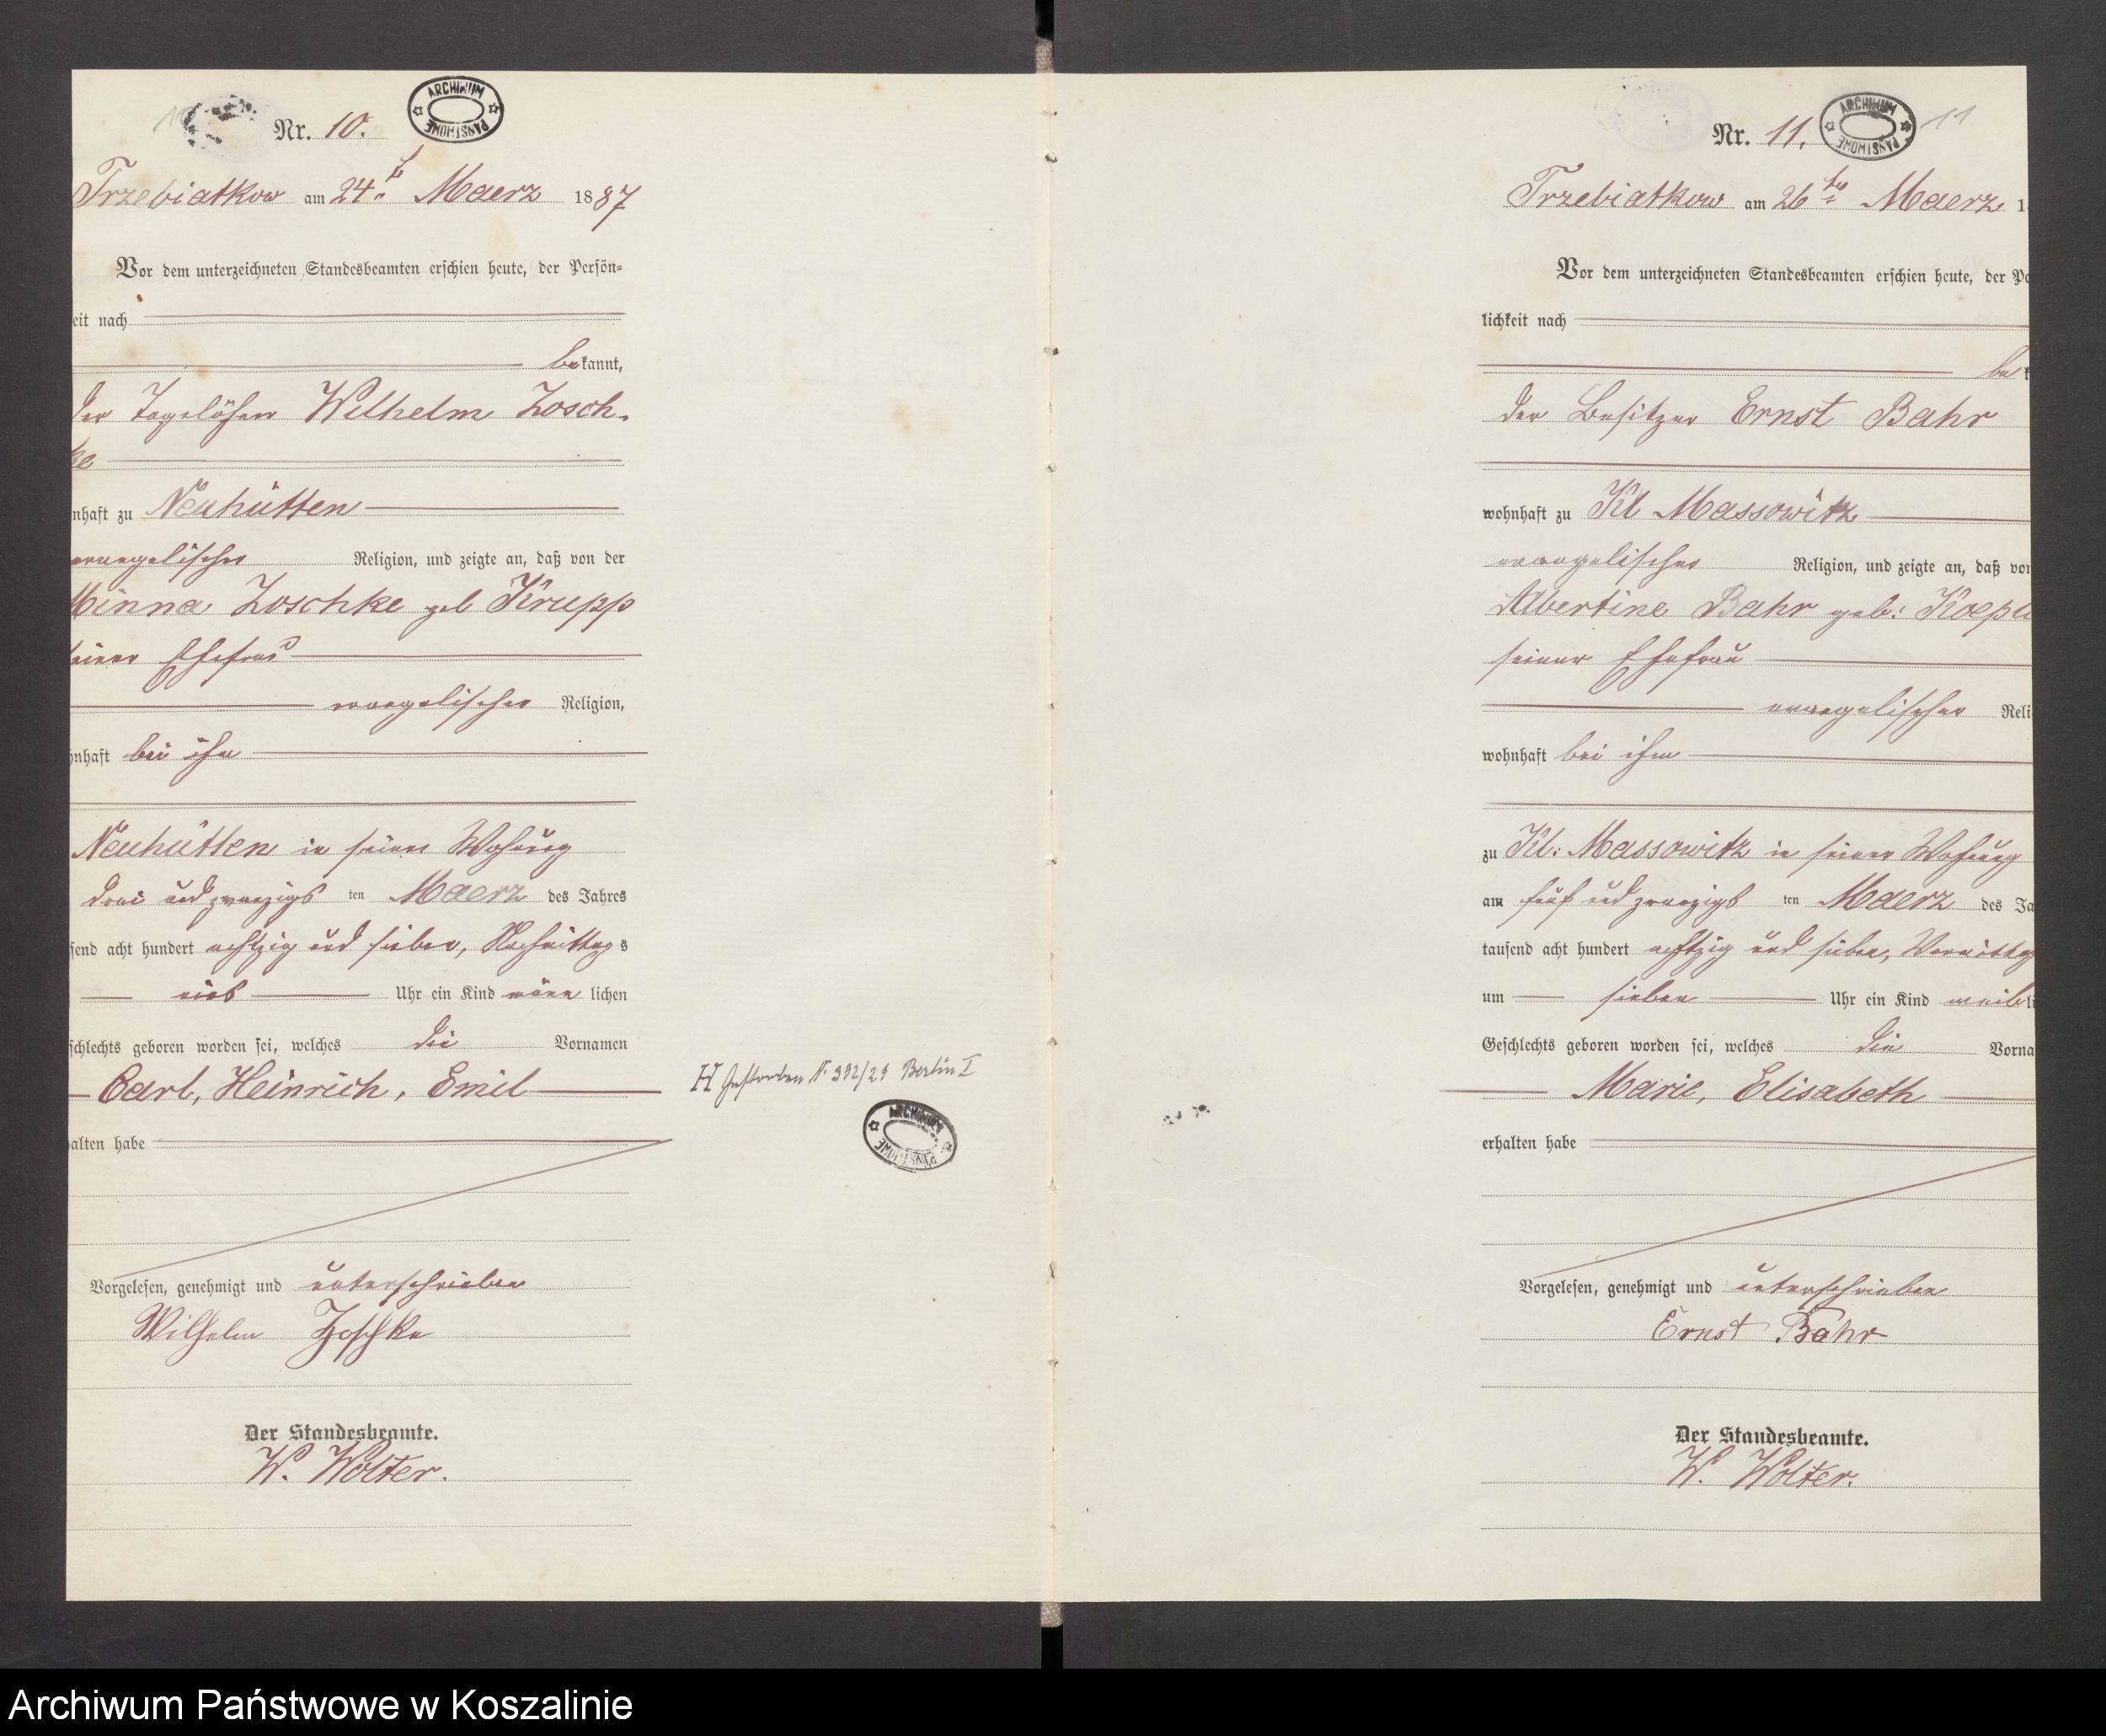 Nr. 10.
ARCHIWUM PAŃSTWOWE
Trzebiatkow am 24. Maerz 1887
Vor dem unterzeichneten Standesbeamten erschien heute, der Persön=
eit nach
bekannt,
der Tagelöhner Wilhelm Zosch-
ke
nhaft zu Neuhütten
evangelischer Religion, und zeigte an, daß von der
Minna Zoschke geb Krupp
seiner Ehefrau
evangelischer Religion,
hnhaft bei ihm
Neuhütten in seiner Wohnung
drei und zwanzigs ten Maerz des Jahres
send acht hundert achtzig und sieben, Nachmittag s
eins Uhr ein Kind männ lichen
schlechts geboren worden sei, welches die Vornamen
Carl, Heinrich, Emil
alten habe
Vorgelesen, genehmigt und unterschrieben
Wilhelm Zoschke
Der Standesbeamte.
W. Wolter.
H Gestorben N. 392/29 Berlin I
ARCHIWUM PAŃSTWOWE
Nr. 11.
ARCHIWUM PAŃSTWOWE
11
Trzebiatkow am 26 Maerz 1
Vor dem unterzeichneten Standesbeamten erschien heute, der Pe
lichkeit nach
be k
der Besitzer Ernst Bahr
wohnhaft zu Kl Massowitz
evangelischer Religion, und zeigte an, daß von
Albertine Bahr geb: Koep
seiner Ehefrau
evangelischer Reli
wohnhaft bei ihm
zu Kl: Massowitz in seiner Wohnung
am fünf und zwanzigs ten Maerz des Ja
tausend acht hundert achtzig und sieben, Vormittag
um sieben Uhr ein Kind weibli
Geschlechts geboren worden sei, welches die Vorna
Marie, Elisabeth
erhalten habe
Vorgelesen, genehmigt und unterschrieben
Ernst Bahr
Der Standesbeamte.
W. Wolter.
Archiwum Państwowe w Koszalinie